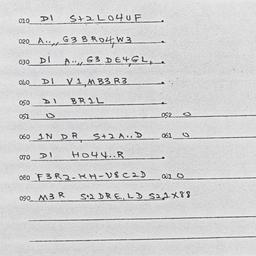 010 DI S+2L04UF .
020 A..,, G3BR04,W3 .
030 DI A..,, G3 DE4GL, .
040 DI V1,MB3R3 .
050 DI BR1L
051 O 052 O
060 1N DR, S+2A..D 061 O
070 DI H044..R .
080 F3R2-HH-V8C2D 081 O
090 M3R S:2DRE,LD S22X88